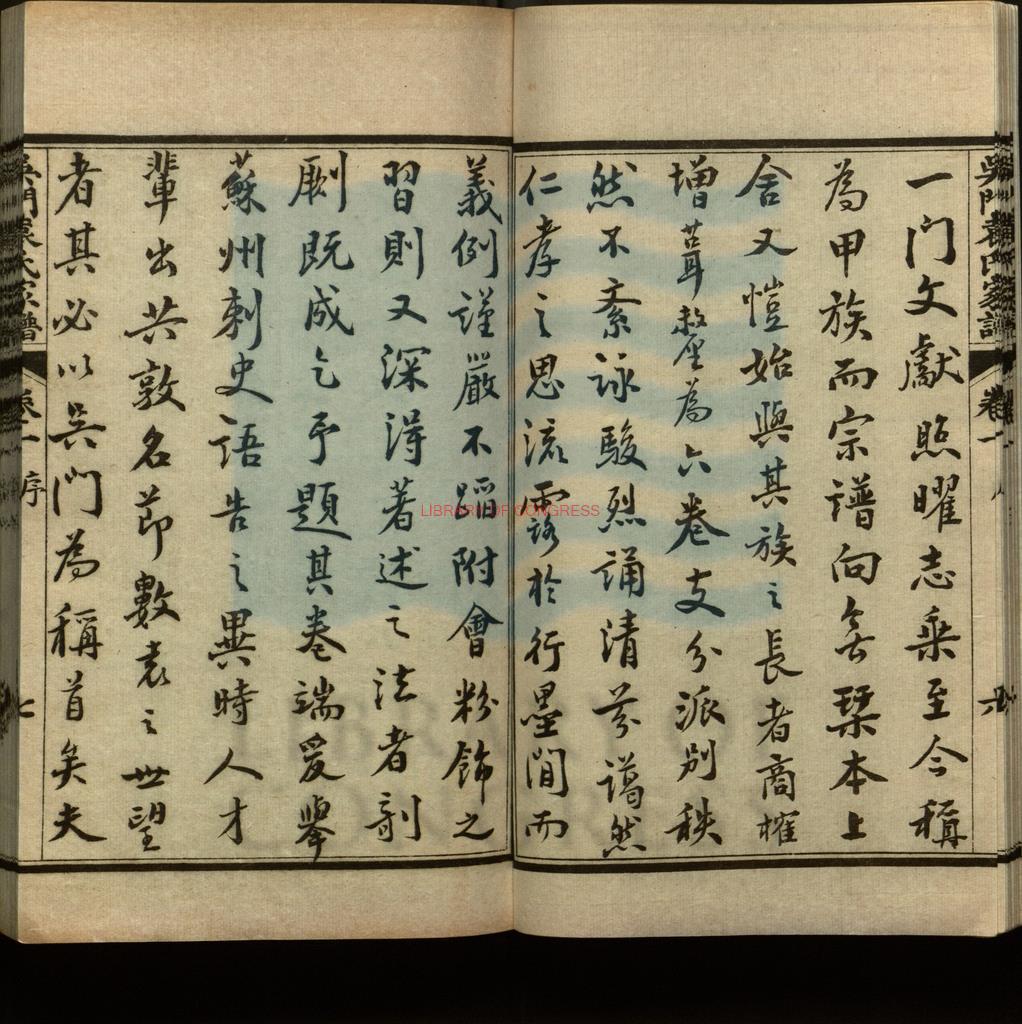 吳門袁氏家譜 卷一
一門文獻照曜志乘至今稱
為甲族而宗譜向無琹本上
舍又愷始與其族之長者商榷
增葺釐為六卷支分派別秩
然不紊詠駿烈誦清芬藹然
仁孝之思流露於行墨間而
義例謹嚴不蹈附會粉飾之
習則又深得著述之法者剞
劂既成乞予題其卷端爰舉
蘇州刺史語告之異時人才
輩出共敦名節數袁之世望
者其必以吳門為稱首矣夫
吳門袁氏家譜 卷一 序 七
LIBRARY OF CONGRESS